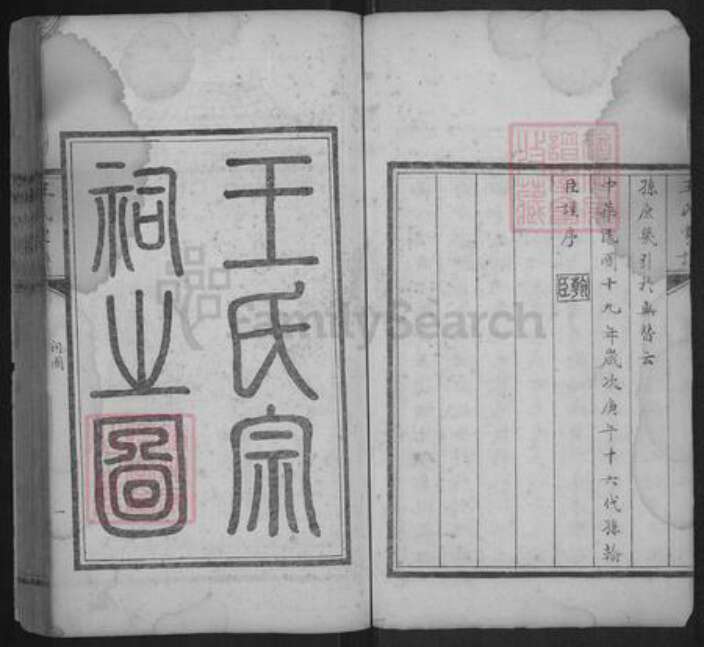 孫庶幾引於無替云
中華民國十九年歲次庚午十六代孫翰
臣謹序
翰臣
王氏宗
祠之圖
祠圖
一
FamilySearch